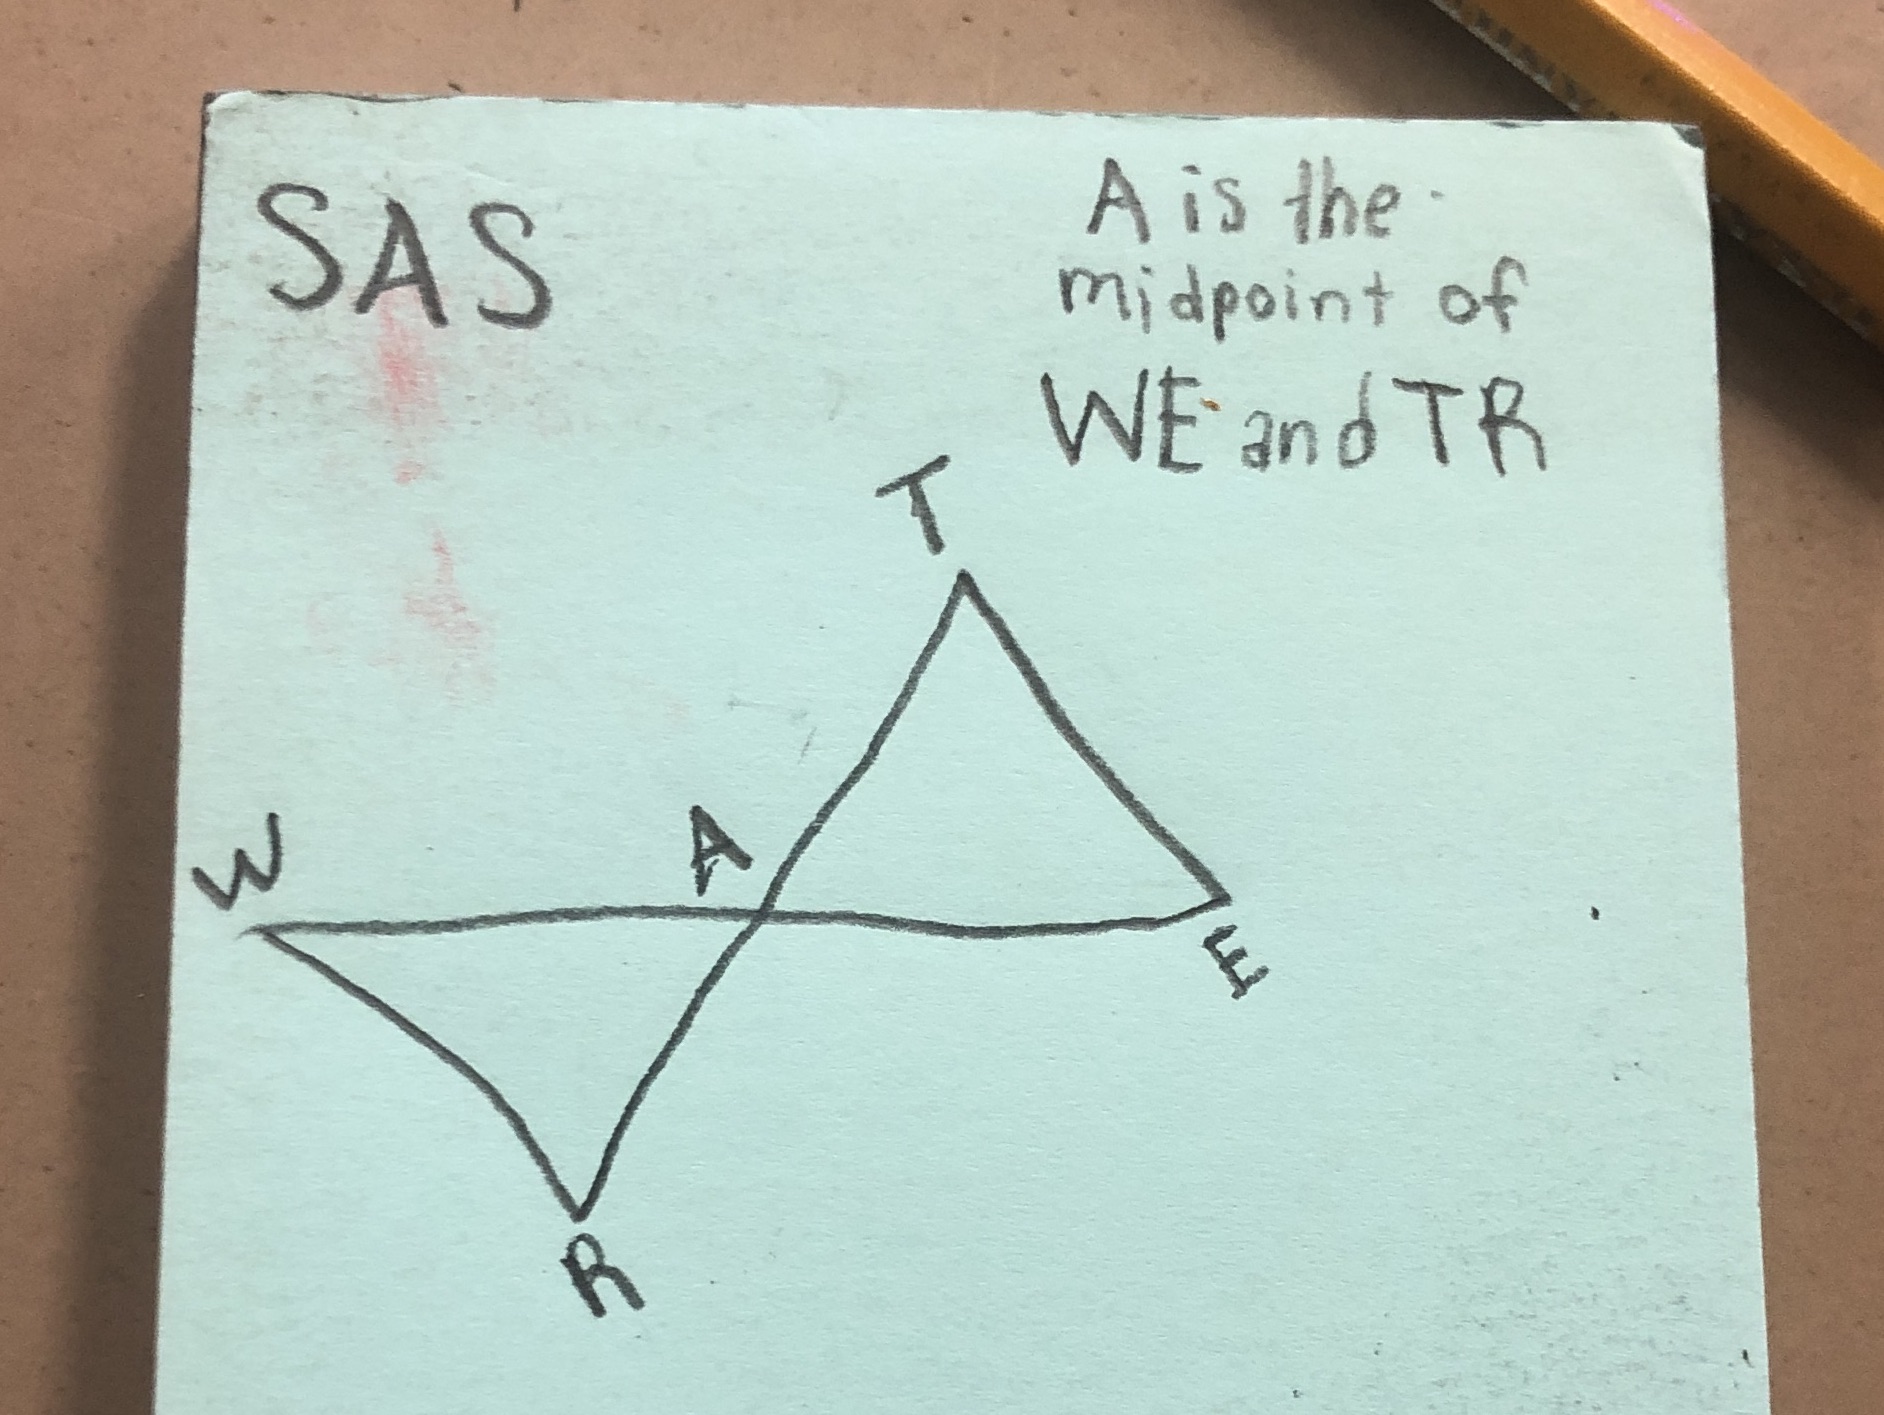 SAS
A is the
midpoint of
WE and TR
T
A
W
E
R